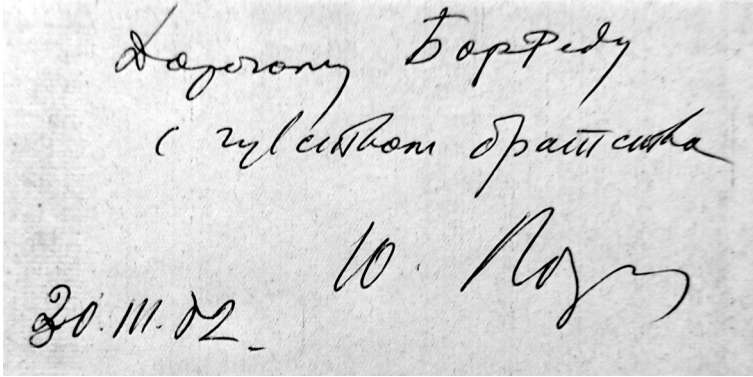 Дорогому Борфеду
с чувством братства
Ю.
30.III.02.